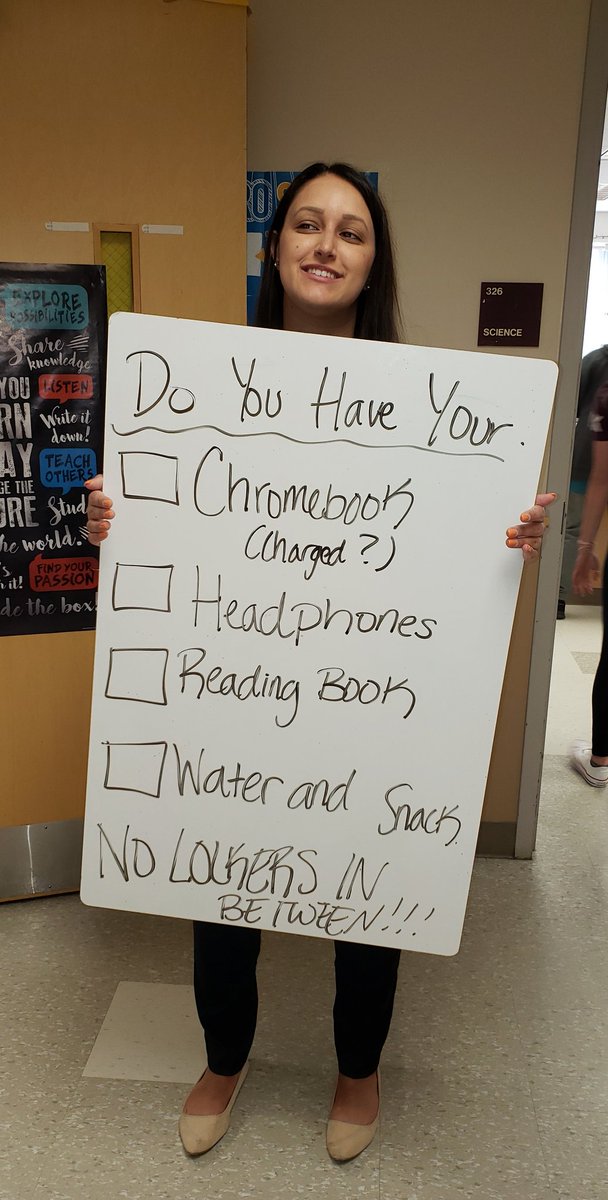 Do You Have Your.
Chromebook
(Charged?)
Headphones
Reading Book
Water and Snack
NO LOCKERS IN
BETWEEN!!!
326
SCIENCE
EXPLORE
POSSIBILITIES
Share
knowledge
YOU
LISTEN
Write it
down!
TEACH
OTHERS
THE
the world.
FIND YOUR
PASSION
the box